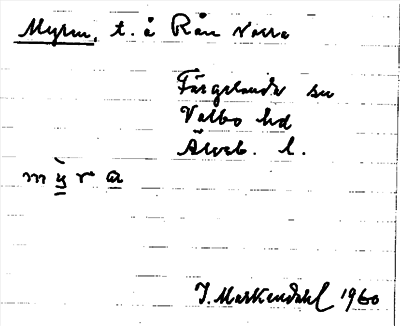 Myren, t. å Rån Norra
Färgelanda sn
Valbo hd
Älvsb. l.
m ỳ̤ r a̲
J. Markendahl 1960